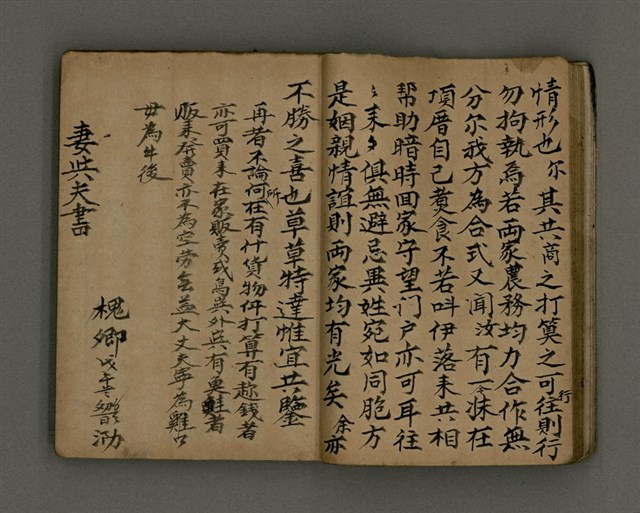 情形也尔其共商之打算之可往則行
勿拘執為若両家農務均力合作無
分尔我方為合式又聞汝有一令妹在
項厝自己煮食不若叫伊落来共相
帮助暗時回家守望门户亦可耳往
〻来〻俱無避忌異姓宛如同胞方
是姻親情誼則両家均有光矣余亦
不勝之喜也草草特達惟宜共鑒
再者不論何所在有什貨物伓打算有趂錢者
亦可買来在家販賣或烏與外共有魚鮭者
販来發賣亦不為空劳無益大丈夫寧為雞口
毋為牛後
妻與夫書
槐卿